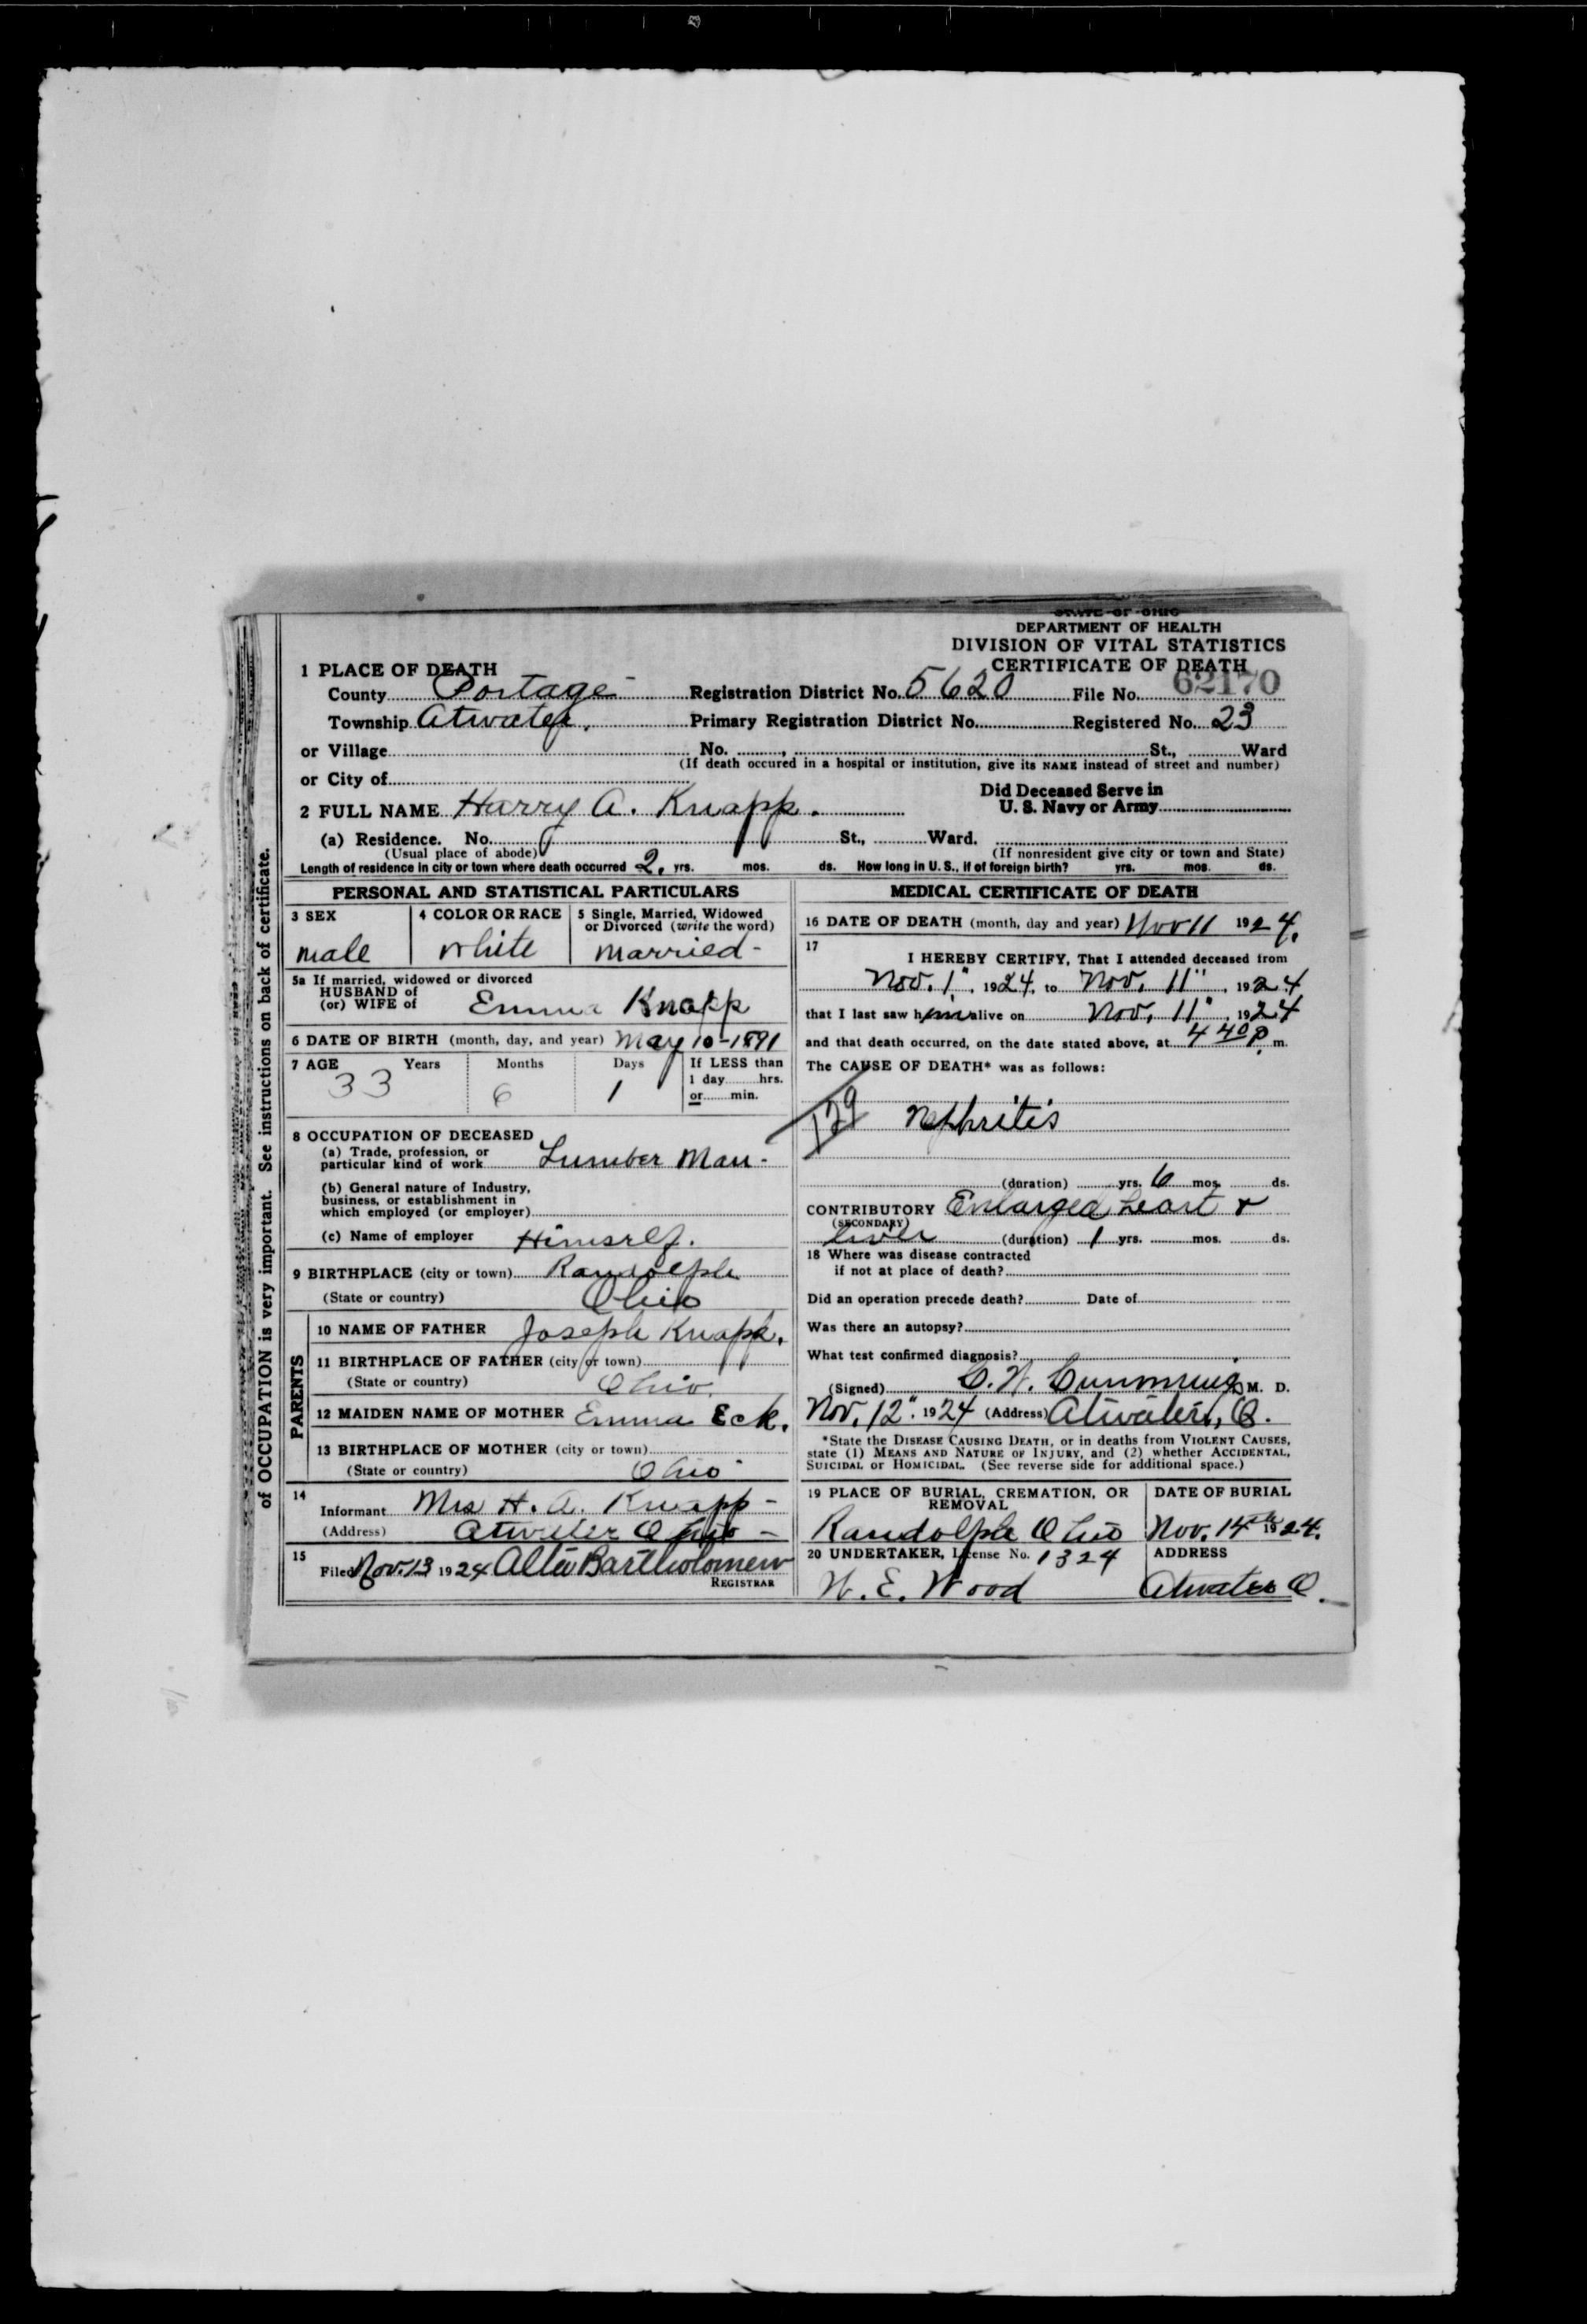 STATE OF OHIO
DEPARTMENT OF HEALTH
DIVISION OF VITAL STATISTICS
CERTIFICATE OF DEATH
1 PLACE OF DEATH
County Portage Registration District No. 5620 File No. 62170
Township Atwater. Primary Registration District No. Registered No. 23
or Village No. , St., Ward
(If death occured in a hospital or institution, give its NAME instead of street and number)
or City of
Did Deceased Serve in
U. S. Navy or Army
2 FULL NAME Harry A. Knapp.
(a) Residence. No. St., Ward.
(Usual place of abode) (If nonresident give city or town and State)
Length of residence in city or town where death occurred 2, yrs. mos. ds. How long in U. S., if of foreign birth? yrs. mos. ds.
of OCCUPATION is very important. See instructions on back of certificate.
PERSONAL AND STATISTICAL PARTICULARS
3 SEX 4 COLOR OR RACE 5 Single, Married, Widowed
or Divorced (write the word)
male white married-
5a If married, widowed or divorced
HUSBAND of
(or) WIFE of Emma Knapp
6 DATE OF BIRTH (month, day, and year) May 10-1891
7 AGE Years Months Days If LESS than
1 day hrs.
or min.
33 6 1
8 OCCUPATION OF DECEASED
(a) Trade, profession, or
particular kind of work Lumber Man-
(b) General nature of Industry,
business, or establishment in
which employed (or employer)
(c) Name of employer Himself.
9 BIRTHPLACE (city or town) Randolph
(State or country) Ohio
PARENTS
10 NAME OF FATHER Joseph Knapp.
11 BIRTHPLACE OF FATHER (city or town)
(State or country) Ohio.
12 MAIDEN NAME OF MOTHER Emma Eck.
13 BIRTHPLACE OF MOTHER (city or town)
(State or country) Ohio
14
Informant Mrs H. A. Knapp-
(Address) Atwater Ohio-
15
Filed Nov. 13 1924 Alta Bartholomew
REGISTRAR
MEDICAL CERTIFICATE OF DEATH
16 DATE OF DEATH (month, day and year) Nov 11 1924.
17
I HEREBY CERTIFY, That I attended deceased from
Nov. 1", 1924, to Nov. 11", 1924
that I last saw him alive on Nov. 11", 1924
and that death occurred, on the date stated above, at 4 40 P. m.
The CAUSE OF DEATH* was as follows:
129 Nephritis
(duration) yrs. 6 mos. ds.
CONTRIBUTORY Enlarged heart &
(SECONDARY)
liver (duration) 1 yrs. mos. ds.
18 Where was disease contracted
if not at place of death?
Did an operation precede death? Date of
Was there an autopsy?
What test confirmed diagnosis?
(Signed) C. W. Cumming M. D.
Nov. 12". 1924 (Address) Atwater, O.
*State the DISEASE CAUSING DEATH, or in deaths from VIOLENT CAUSES,
state (1) MEANS AND NATURE OF INJURY, and (2) whether ACCIDENTAL,
SUICIDAL or HOMICIDAL. (See reverse side for additional space.)
19 PLACE OF BURIAL, CREMATION, OR
REMOVAL
DATE OF BURIAL
Randolph Ohio Nov. 14th 1924.
20 UNDERTAKER, License No. 1324 ADDRESS
W. E. Wood Atwater O.